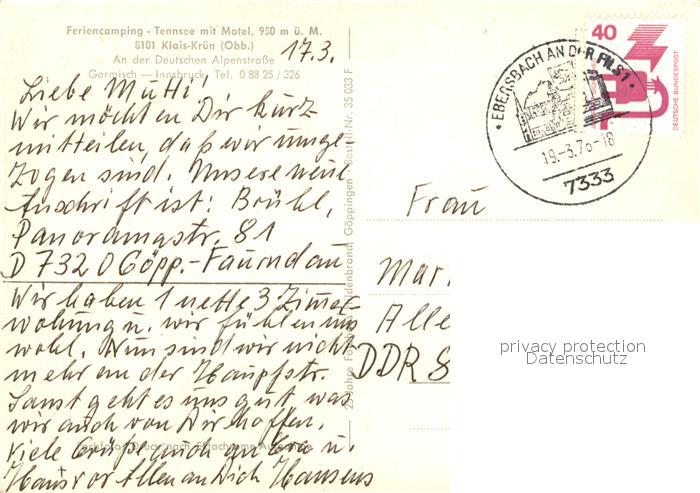 Feriencamping - Tennsee mit Motel, 950 m ü. M.
8101 Klais-Krün (Obb.)
An der Deutschen Alpenstraße
Garmisch — Innsbruck, Tel. 0 88 25 / 326
17.3.
Liebe Mutti!
Wir möchten Dir kurz
mitteilen, daß wir umge-
zogen sind. Unsere neue
Anschrift ist: Brühl,
Panoramastr. 81
D 7320 Göpp.-Faurndau
Wir haben 1 nette 3 Zimmer
wohnung u. wir fühlen uns
wohl. Nun sind wir nicht
mehr an der Hauptstr.
Sonst geht es uns gut was
wir auch von Dir hoffen.
Viele Grüße auch an u.
Hans vor Allen an Dich Hansens
Göppingen Bestell-Nr. 35 033 F
40
DEUTSCHE BUNDESPOST
EBERSBACH AN DER FILS 1
19.-3.7 -18
7333
Frau
Mar
Alle
DDR 8
privacy protection
Datenschutz